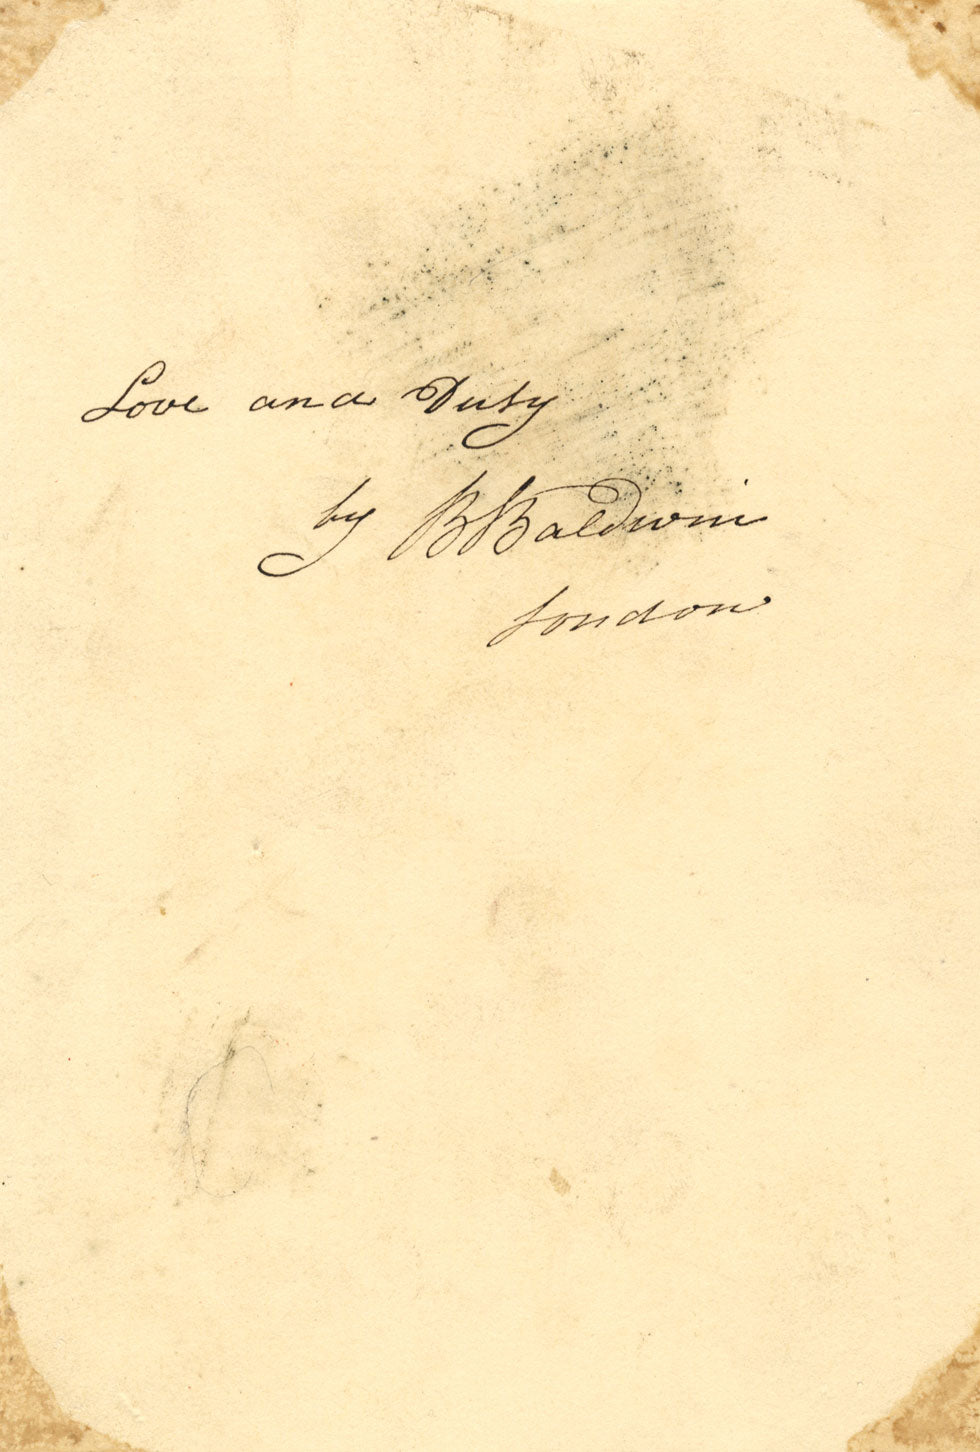 Love and Duty
by B Baldwin
London